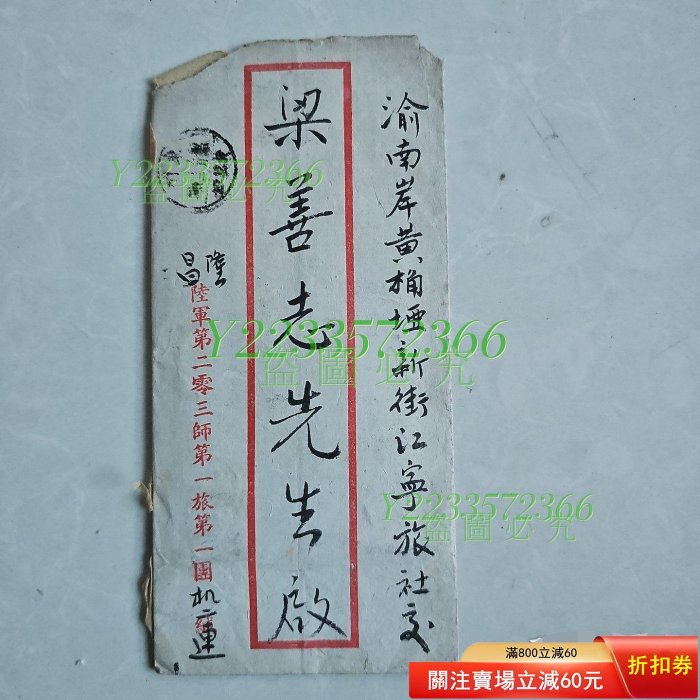 渝南岸黄桷垭新街江寧旅社交
梁善志先生啟
隆昌
陸軍第二零三師第一旅第一團
机二連
Y2233572366
盜圖必究
Y2233572366
盜圖必究
Y2233572366
盜圖必究
滿800立減60
關注賣場立減60元
折扣券